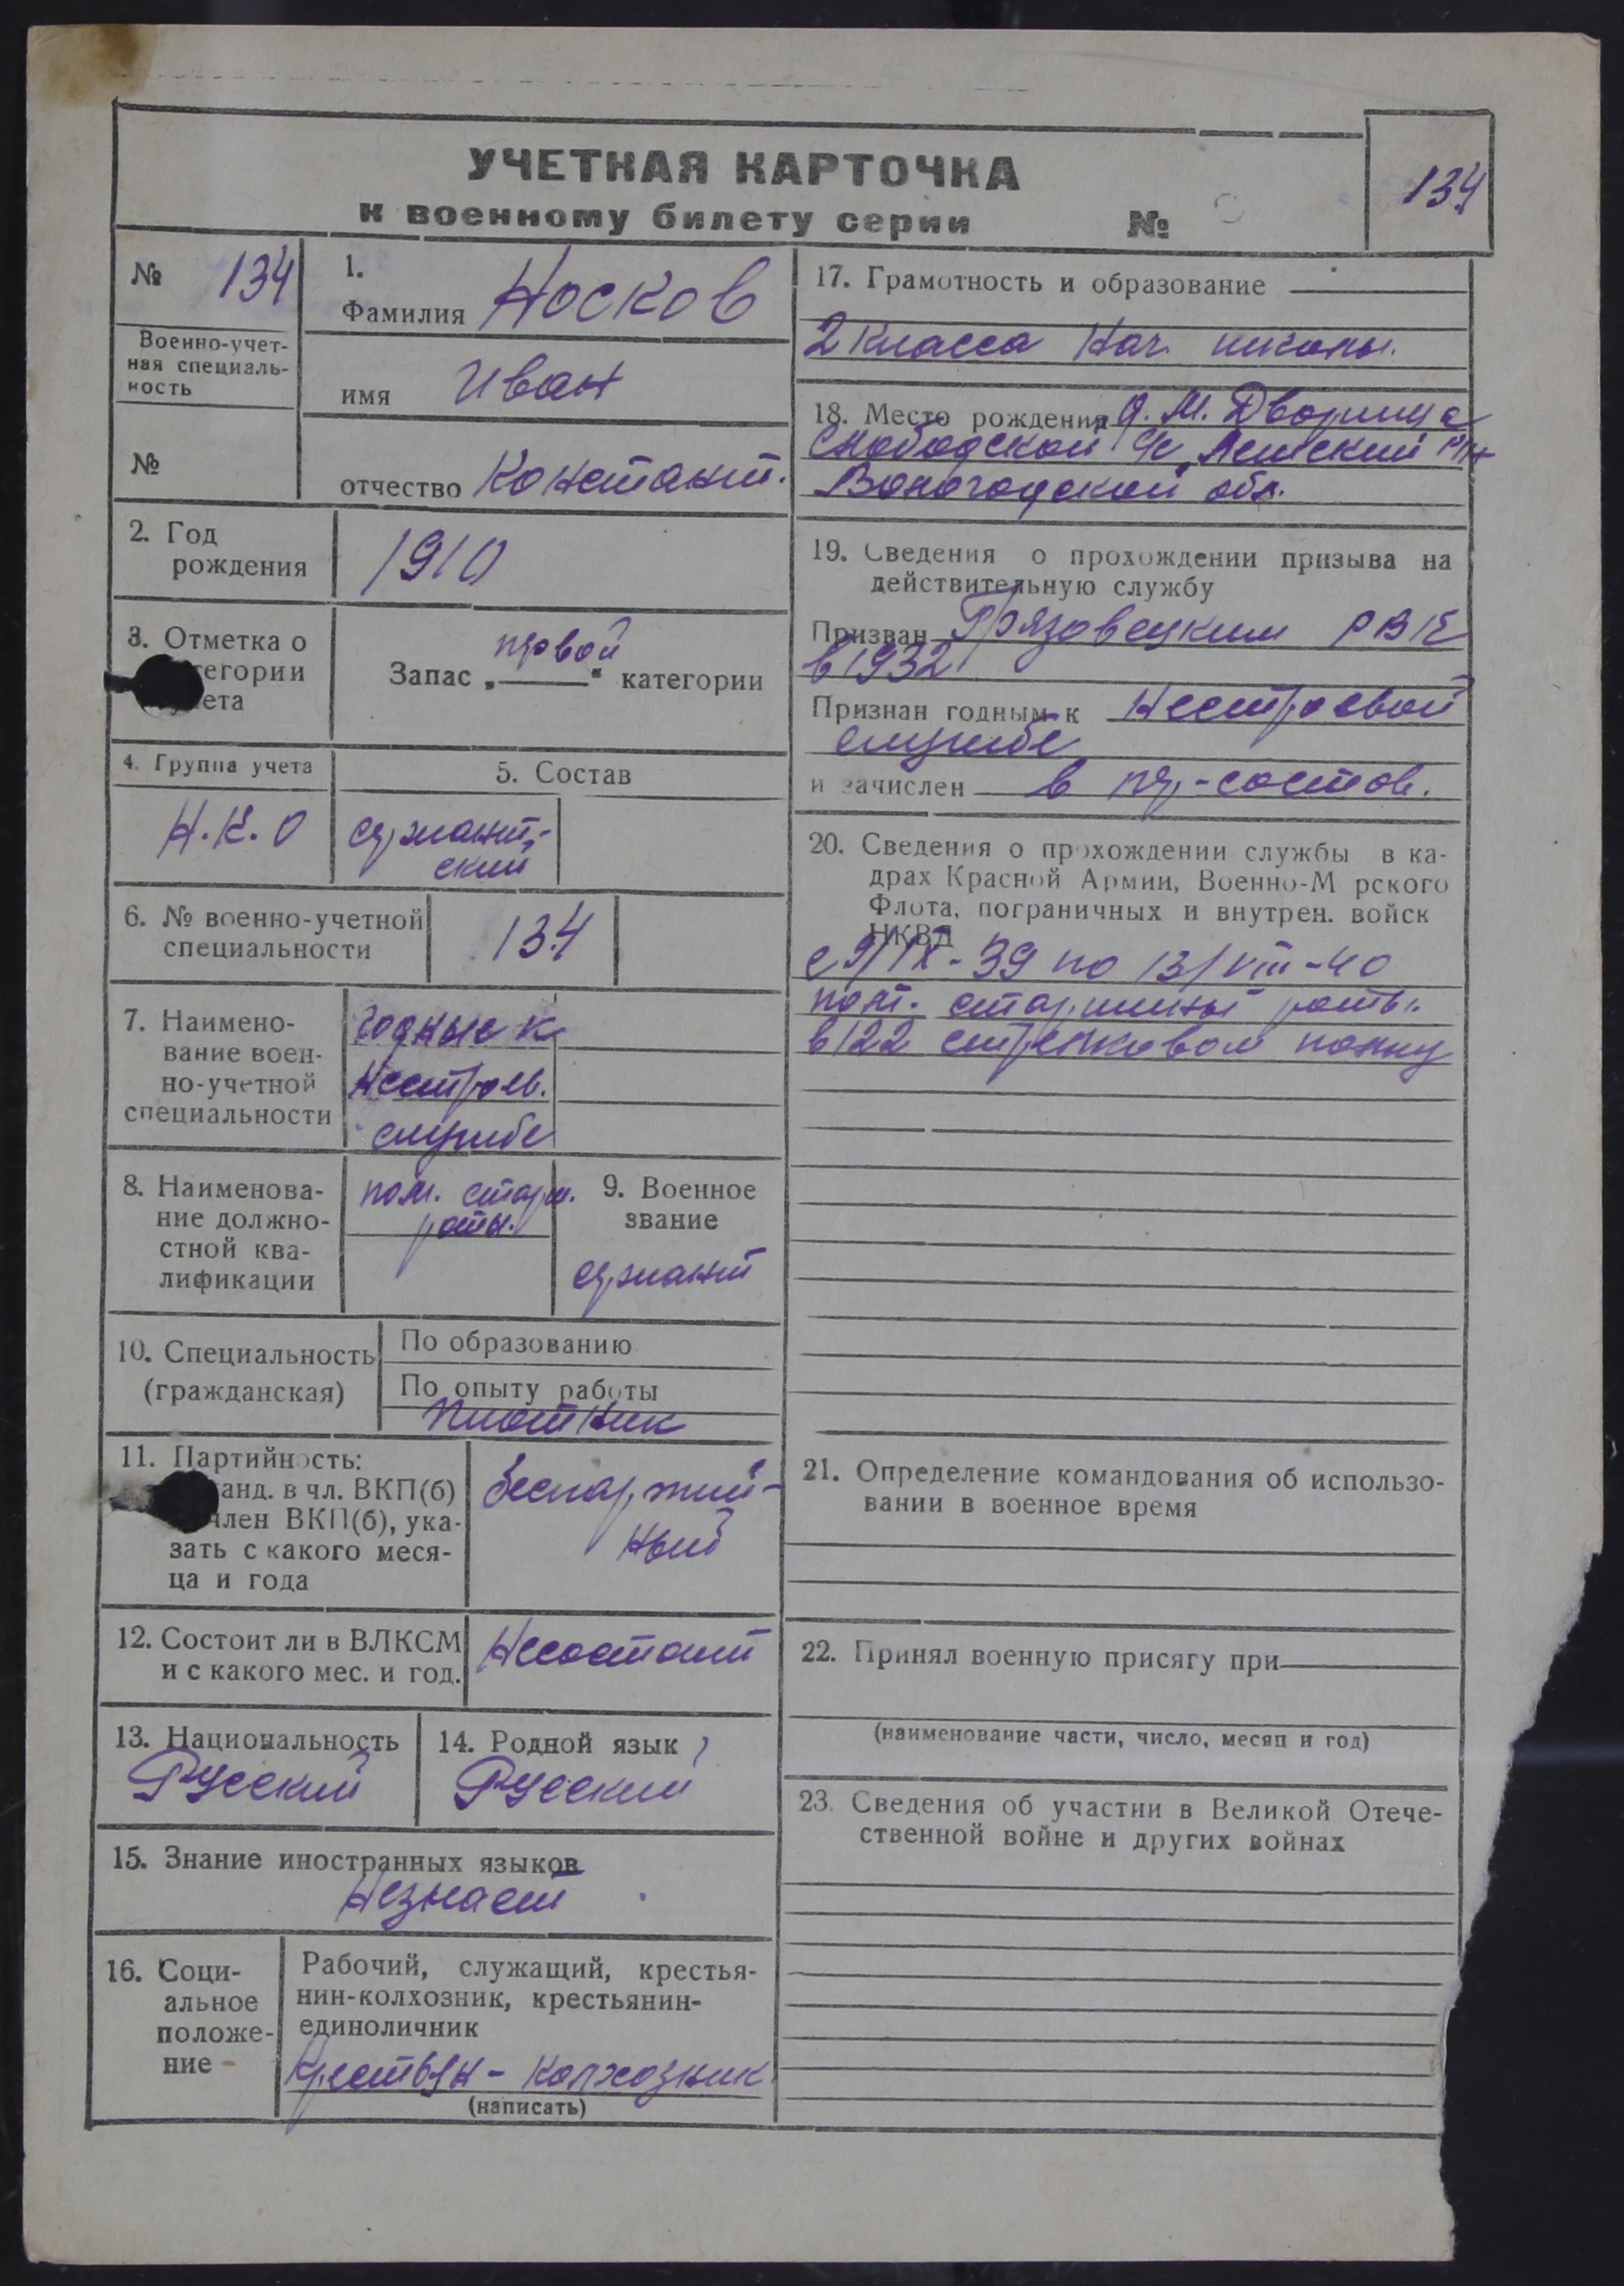 УЧЕТНАЯ КАРТОЧКА
к военному билету серии №
134
№ 134
Военно-учет-
ная специаль-
ность
№
1.
Фамилия Носков
имя Иван
отчество Констант.
2. Год
рождения
1910
3. Отметка о
тегории
ета
первой
Запас „ “ категории
4. Группа учета
Н.К.О
5. Состав
сержант-
ский
6. № военно-учетной
специальности
134
7. Наимено-
вание воен-
но-учетной
специальности
годные к
нестроев.
службе
8. Наименова-
ние должно-
стной ква-
лификации
пом. старш.
роты.
9. Военное
звание
сержант
10. Специальность
(гражданская)
По образованию
По опыту работы
плотник
11. Партийность:
анд. в чл. ВКП(б)
член ВКП(б), ука-
зать с какого меся-
ца и года
беспартий-
ный
12. Состоит ли в ВЛКСМ
и с какого мес. и год.
Несостоит
13. Национальность
Русский
14. Родной язык
Русский
15. Знание иностранных языков
Незнает
16. Соци-
альное
положе-
ние
Рабочий, служащий, крестья-
нин-колхозник, крестьянин-
единоличник
Крестьян-колхозник
(написать)
17. Грамотность и образование
2 класса нач. школы.
18. Место рождения д. М. Дворища
Слободской с/с Лежский р/н
Вологодской обл.
19. Сведения о прохождении призыва на
действительную службу
Призван Грязовецким РВК
в 1932
Признан годным к нестроевой
службе
и зачислен в пер-состав.
20. Сведения о прохождении службы в ка-
драх Красной Армии, Военно-М рского
Флота, пограничных и внутрен. войск
НКВД
с 9/IX-39 по 13/VIII-40
пом. старшины роты.
в 122 стрелковом полку
21. Определение командования об использо-
вании в военное время
22. Принял военную присягу при
(наименование части, число, месяц и год)
23. Сведения об участии в Великой Отече-
ственной войне и других войнах